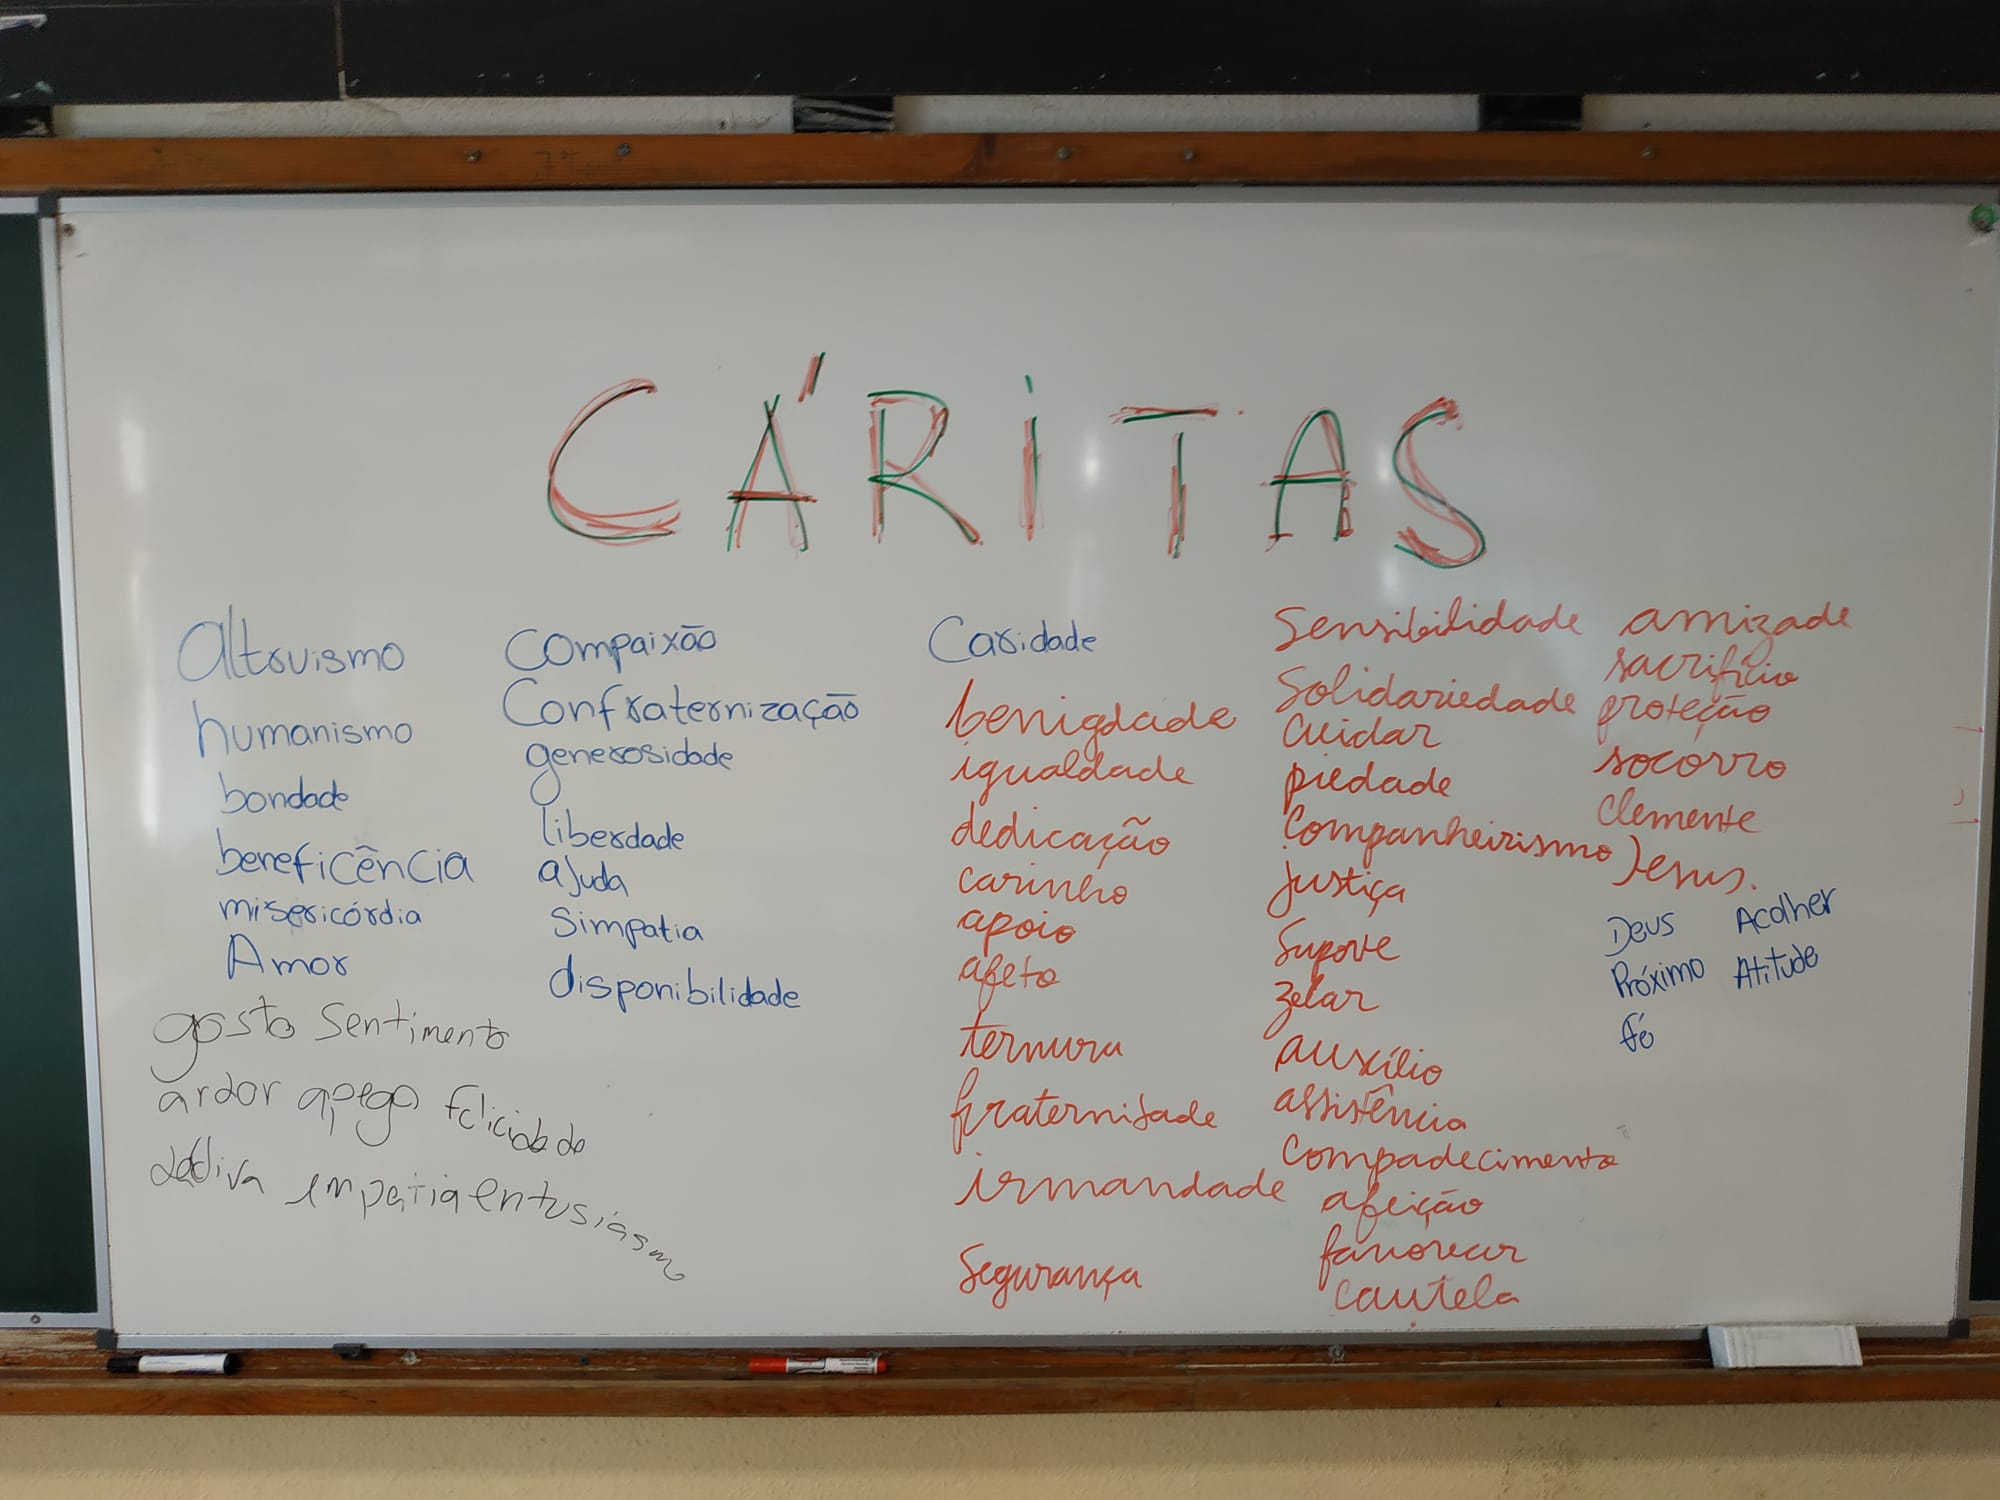 CÁRITAS
Altruismo
humanismo
bondade
beneficência
misericórdia
Amor
gosto sentimento
ardor apego felicidade
dádiva empatia entusiásmo
Compaixão
Confraternização
generosidade
liberdade
ajuda
Simpatia
disponibilidade
Caridade
benigdade
igualdade
dedicação
carinho
apoio
afeto
ternura
fraternidade
irmandade
Segurança
Sensibilidade
Solidariedade
Cuidar
piedade
Companheirismo
justiça
Suporte
zelar
auxílio
assistência
Compadecimento
afeição
favorecer
cautela
amizade
sacrifício
proteção
socorro
Clemente
Jesus.
Deus Acolher
Próximo Atitude
fé